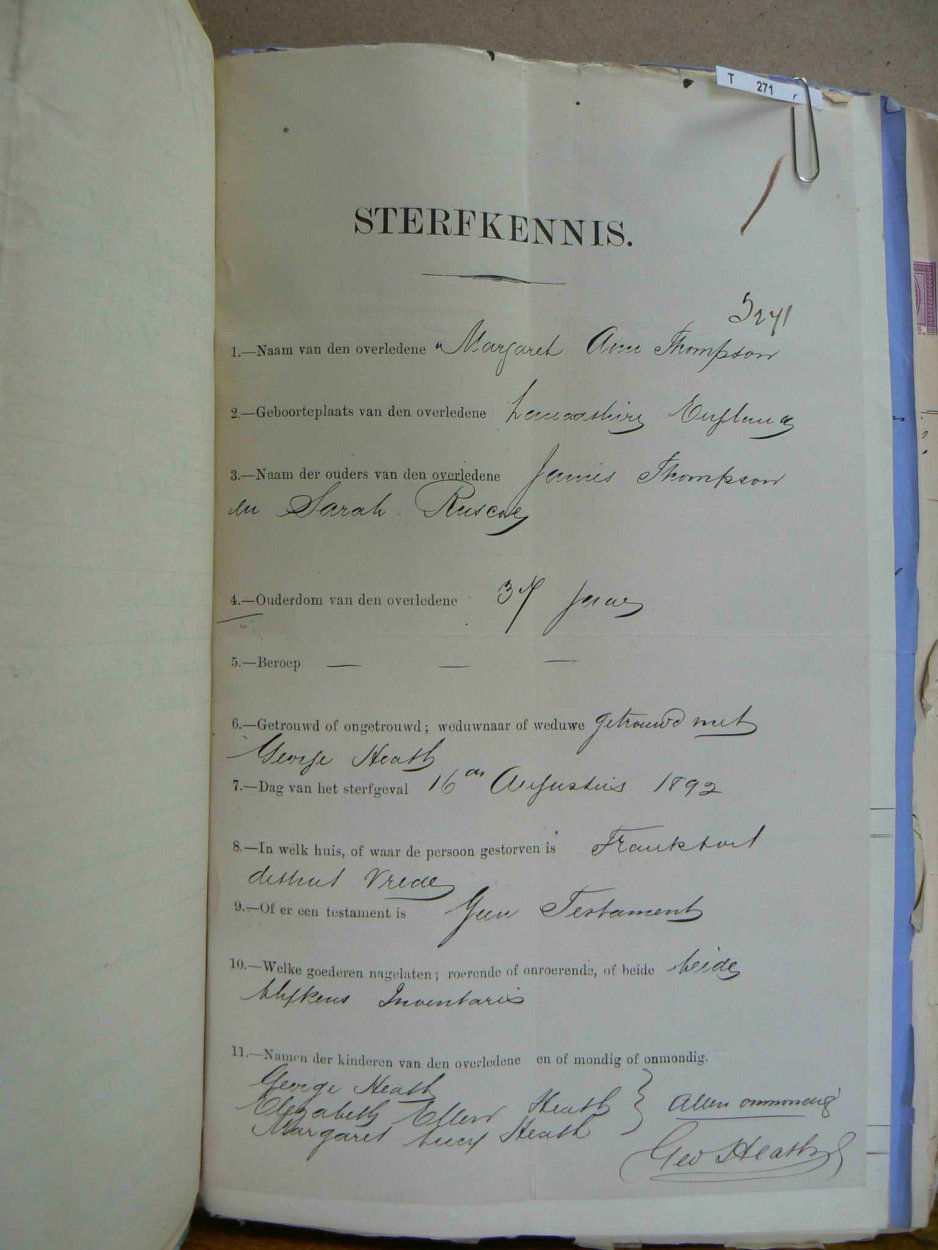 T 271
STERFKENNIS.
5271
1.—Naam van den overledene Margaret Ann Thompson
2.—Geboorteplaats van den overledene Lancashire England
3.—Naam der ouders van den overledene James Thompson
en Sarah Ruscoe
4.—Ouderdom van den overledene 37 Jaar
5.—Beroep — — —
6.—Getrouwd of ongetrouwd; weduwnaar of weduwe getrouwd met
George Heath
7.—Dag van het sterfgeval 16de Augustus 1892
8.—In welk huis, of waar de persoon gestorven is Frankfort
district Vrede
9.—Of er een testament is Geen Testament
10.—Welke goederen nagelaten; roerende of onroerende, of beide beide
blijkens Inventaris
11.—Namen der kinderen van den overledene en of mondig of onmondig.
George Heath
Elizabeth Ellen Heath } Allen onmondig
Margaret Lucy Heath
Geo Heath